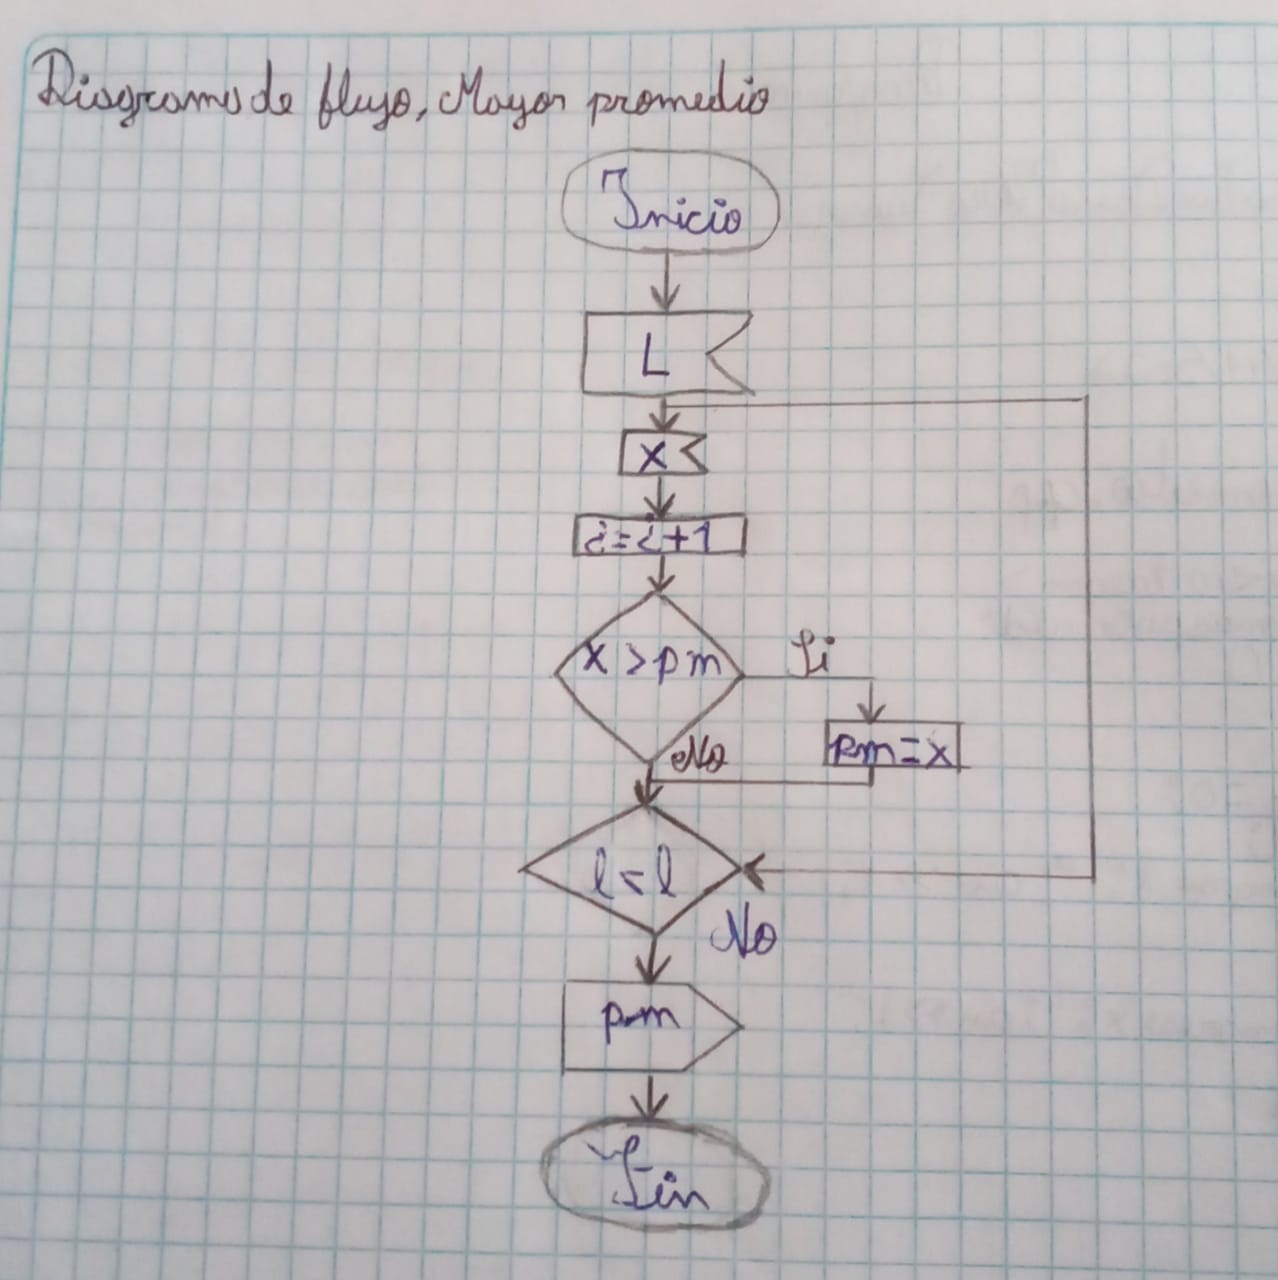 Diagrama de flujo, Mayor promedio
Inicio
L
x
i=i+1
x > pm
Si
No
pm=x
l<l
No
pm
Fin